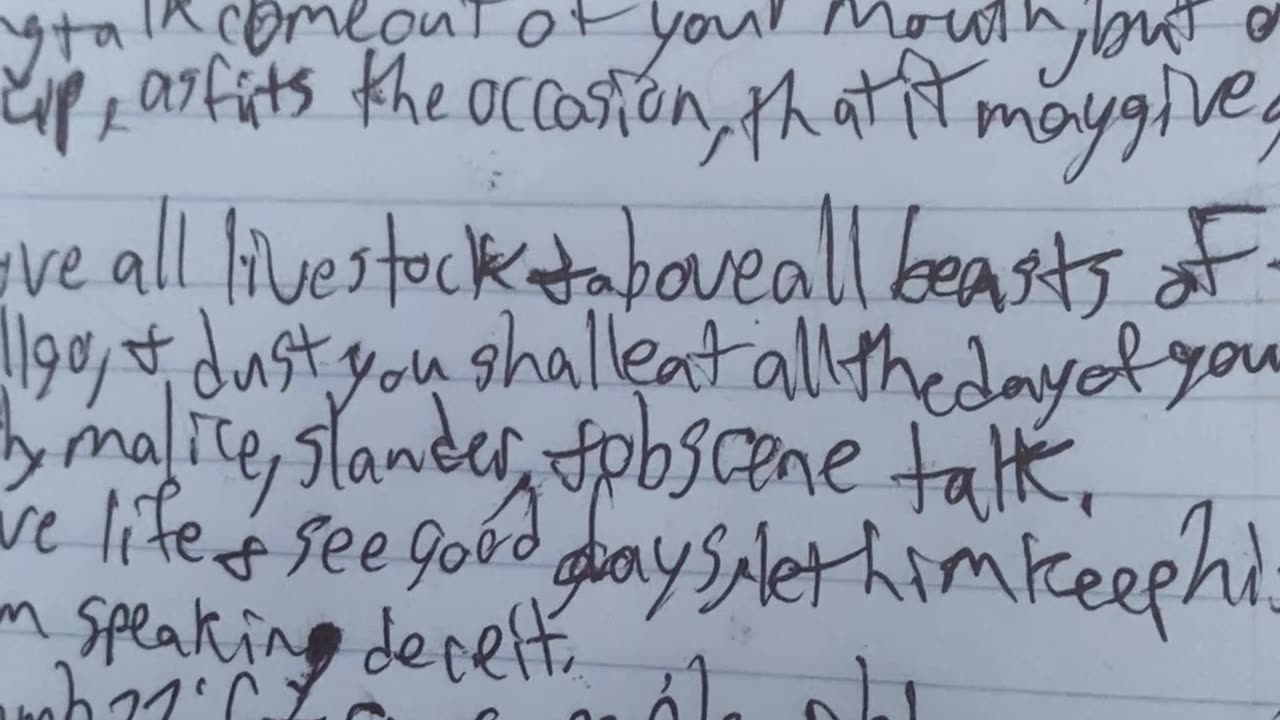 talk come out of your mouth, but
up, as fits the occasion, that it may give
ve all livestock & above all beasts of
ll go, & dust you shall eat all the day of you
malice, slander, & obscene talk.
ve life & see good days, let him keep hi
m speaking deceit.